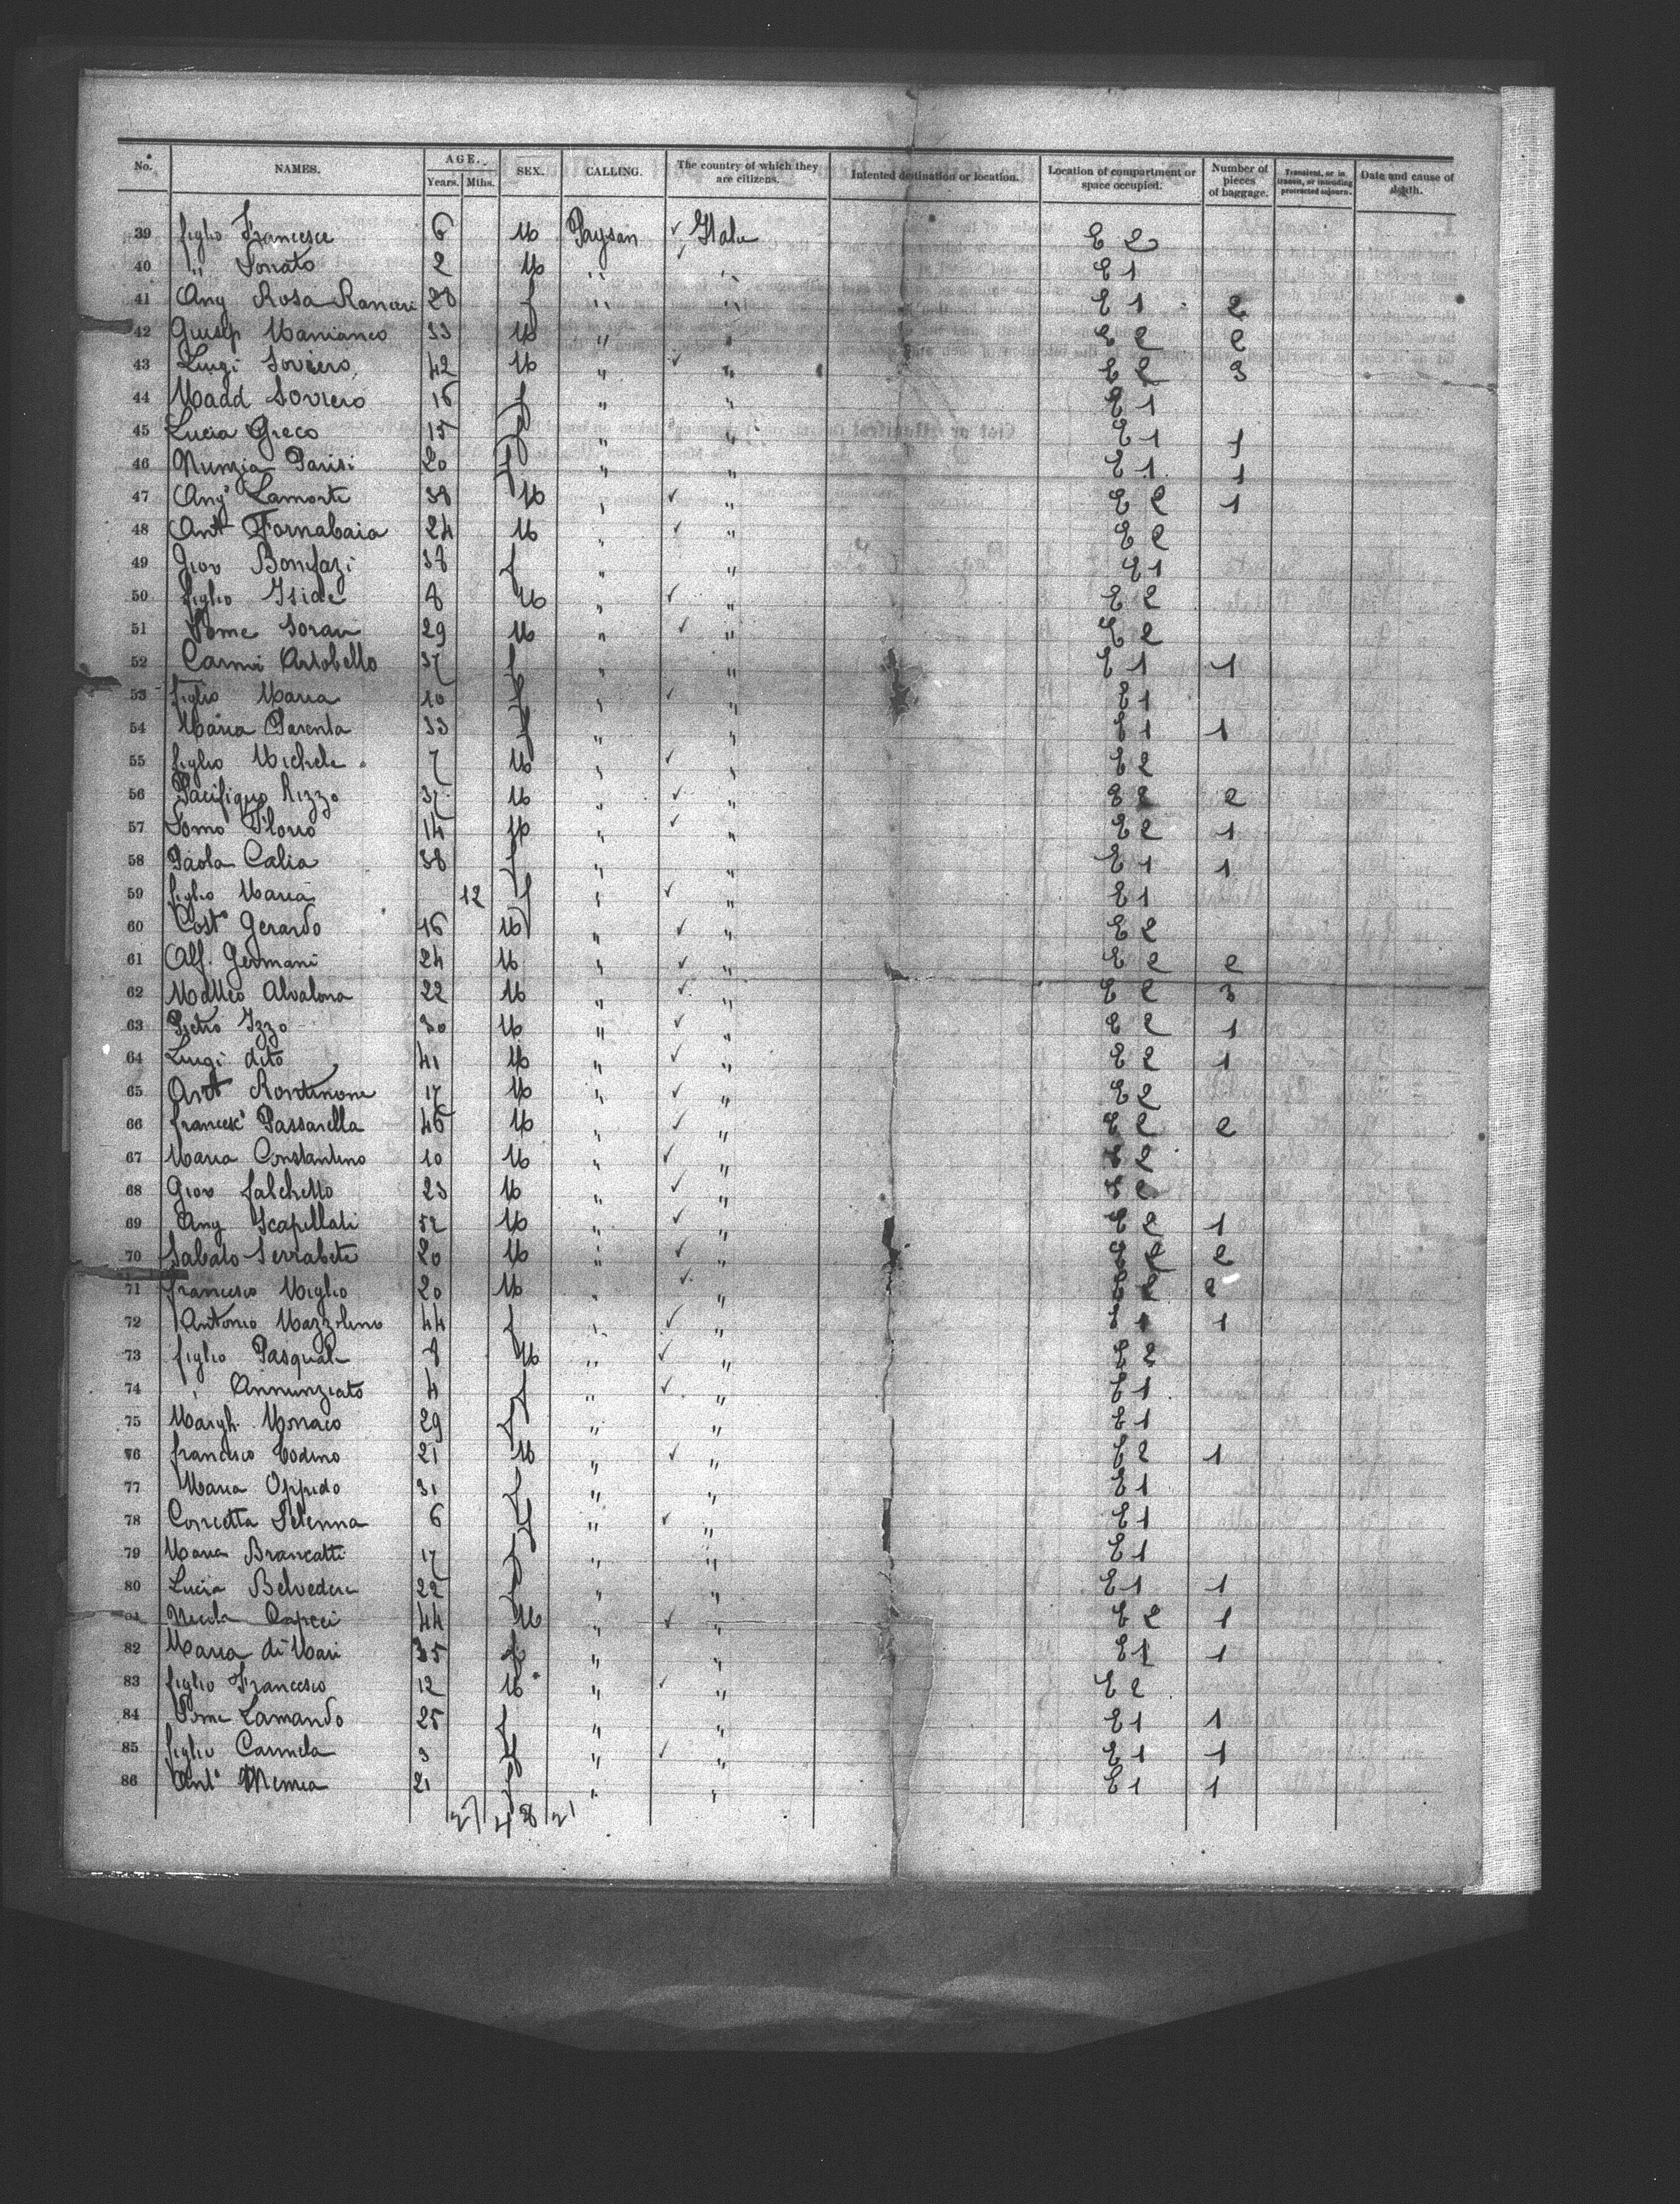 No. NAMES. AGE. Years. Mths. SEX. CALLING. The country of which they are citizens. Intented destination or location. Location of compartment or space occupied. Number of pieces of baggage. Transient, or in transit, or intending protracted sojourn. Date and cause of death.
39 figlio Francesco 6 M Paysan ✓ Italie E 2
40 " Donato 2 M " " E 1
41 Ang Rosa Ranieri 28 f " " E 1 2
42 Giusep 33 M " " E 2 2
43 Luigi Soviero 42 M " ✓ " E 2 3
44 Madd Soviero 16 f " " E 1
45 Lucia Greco 15 f " " E 1 1
46 Nunzia Parisi 20 f " " E 1 1
47 Ang Lamorte 38 M " ✓ " E 2 1
48 Ant Fornabaia 24 M " ✓ " E 2
49 Giov Bonifazi 38 f " " E 1
50 figlio Iside 8 M " ✓ " E 2
51 Dome 29 M " ✓ " E 2
52 Carmi Artobello 37 f " " E 1 1
53 figlio Maria 10 f " ✓ " E 1
54 Maria Parenta 33 f " " E 1 1
55 figlio Michele 7 M " ✓ " E 2
56 Pacifiquo Rizzo 37 M " ✓ " E 2 2
57 Florio 14 M " ✓ " E 2 1
58 Paola Calia 38 f " " E 1 1
59 figlio Maria 12 f " ✓ " E 1
60 Cost° Gerardo 16 M " ✓ " E 2
61 Alf. Germani 24 M " ✓ " E 2 2
62 Matteo Alvalona 22 M " ✓ " E 2 3
63 Pietro Izzo 30 M " ✓ " E 2 1
64 Luigi dito 41 M " ✓ " E 2 1
65 Ant Rontinone 17 M " ✓ " E 2
66 francesc° Passarella 46 M " ✓ " E 2 2
67 Maria Constantino 10 M " ✓ " E 2
68 Giov Falchetto 23 M " ✓ " E 2
69 Ang Scapellati 52 M " ✓ " E 2 1
70 Sabato Serrabete 20 M " ✓ " E 2 2
71 francesco Miglio 20 M " ✓ " E 2 2
72 Antonio Mazzolino 44 f " ✓ " E 1 1
73 figlio Pasquale 8 M " ✓ " E 2
74 " Annunziato 4 f " ✓ " E 1
75 Margh. Monaco 29 f " " E 1
76 francesco Codino 21 M " ✓ " E 2 1
77 Maria Oppido 31 f " " E 1
78 Concetta 6 f " ✓ " E 1
79 Maria Brancatti 17 f " " E 1
80 Lucia Belvedere 22 f " " E 1 1
81 Nicola Capcci 44 M " ✓ " E 2 1
82 Maria di Mari 35 f " " E 1 1
83 figlio Francesco 12 M " ✓ " E 2
84 Dome Lamando 25 f " " E 1 1
85 figlio Carmela 3 f " ✓ " E 1 1
86 Ant° 21 f " " E 1 1
27 48 21